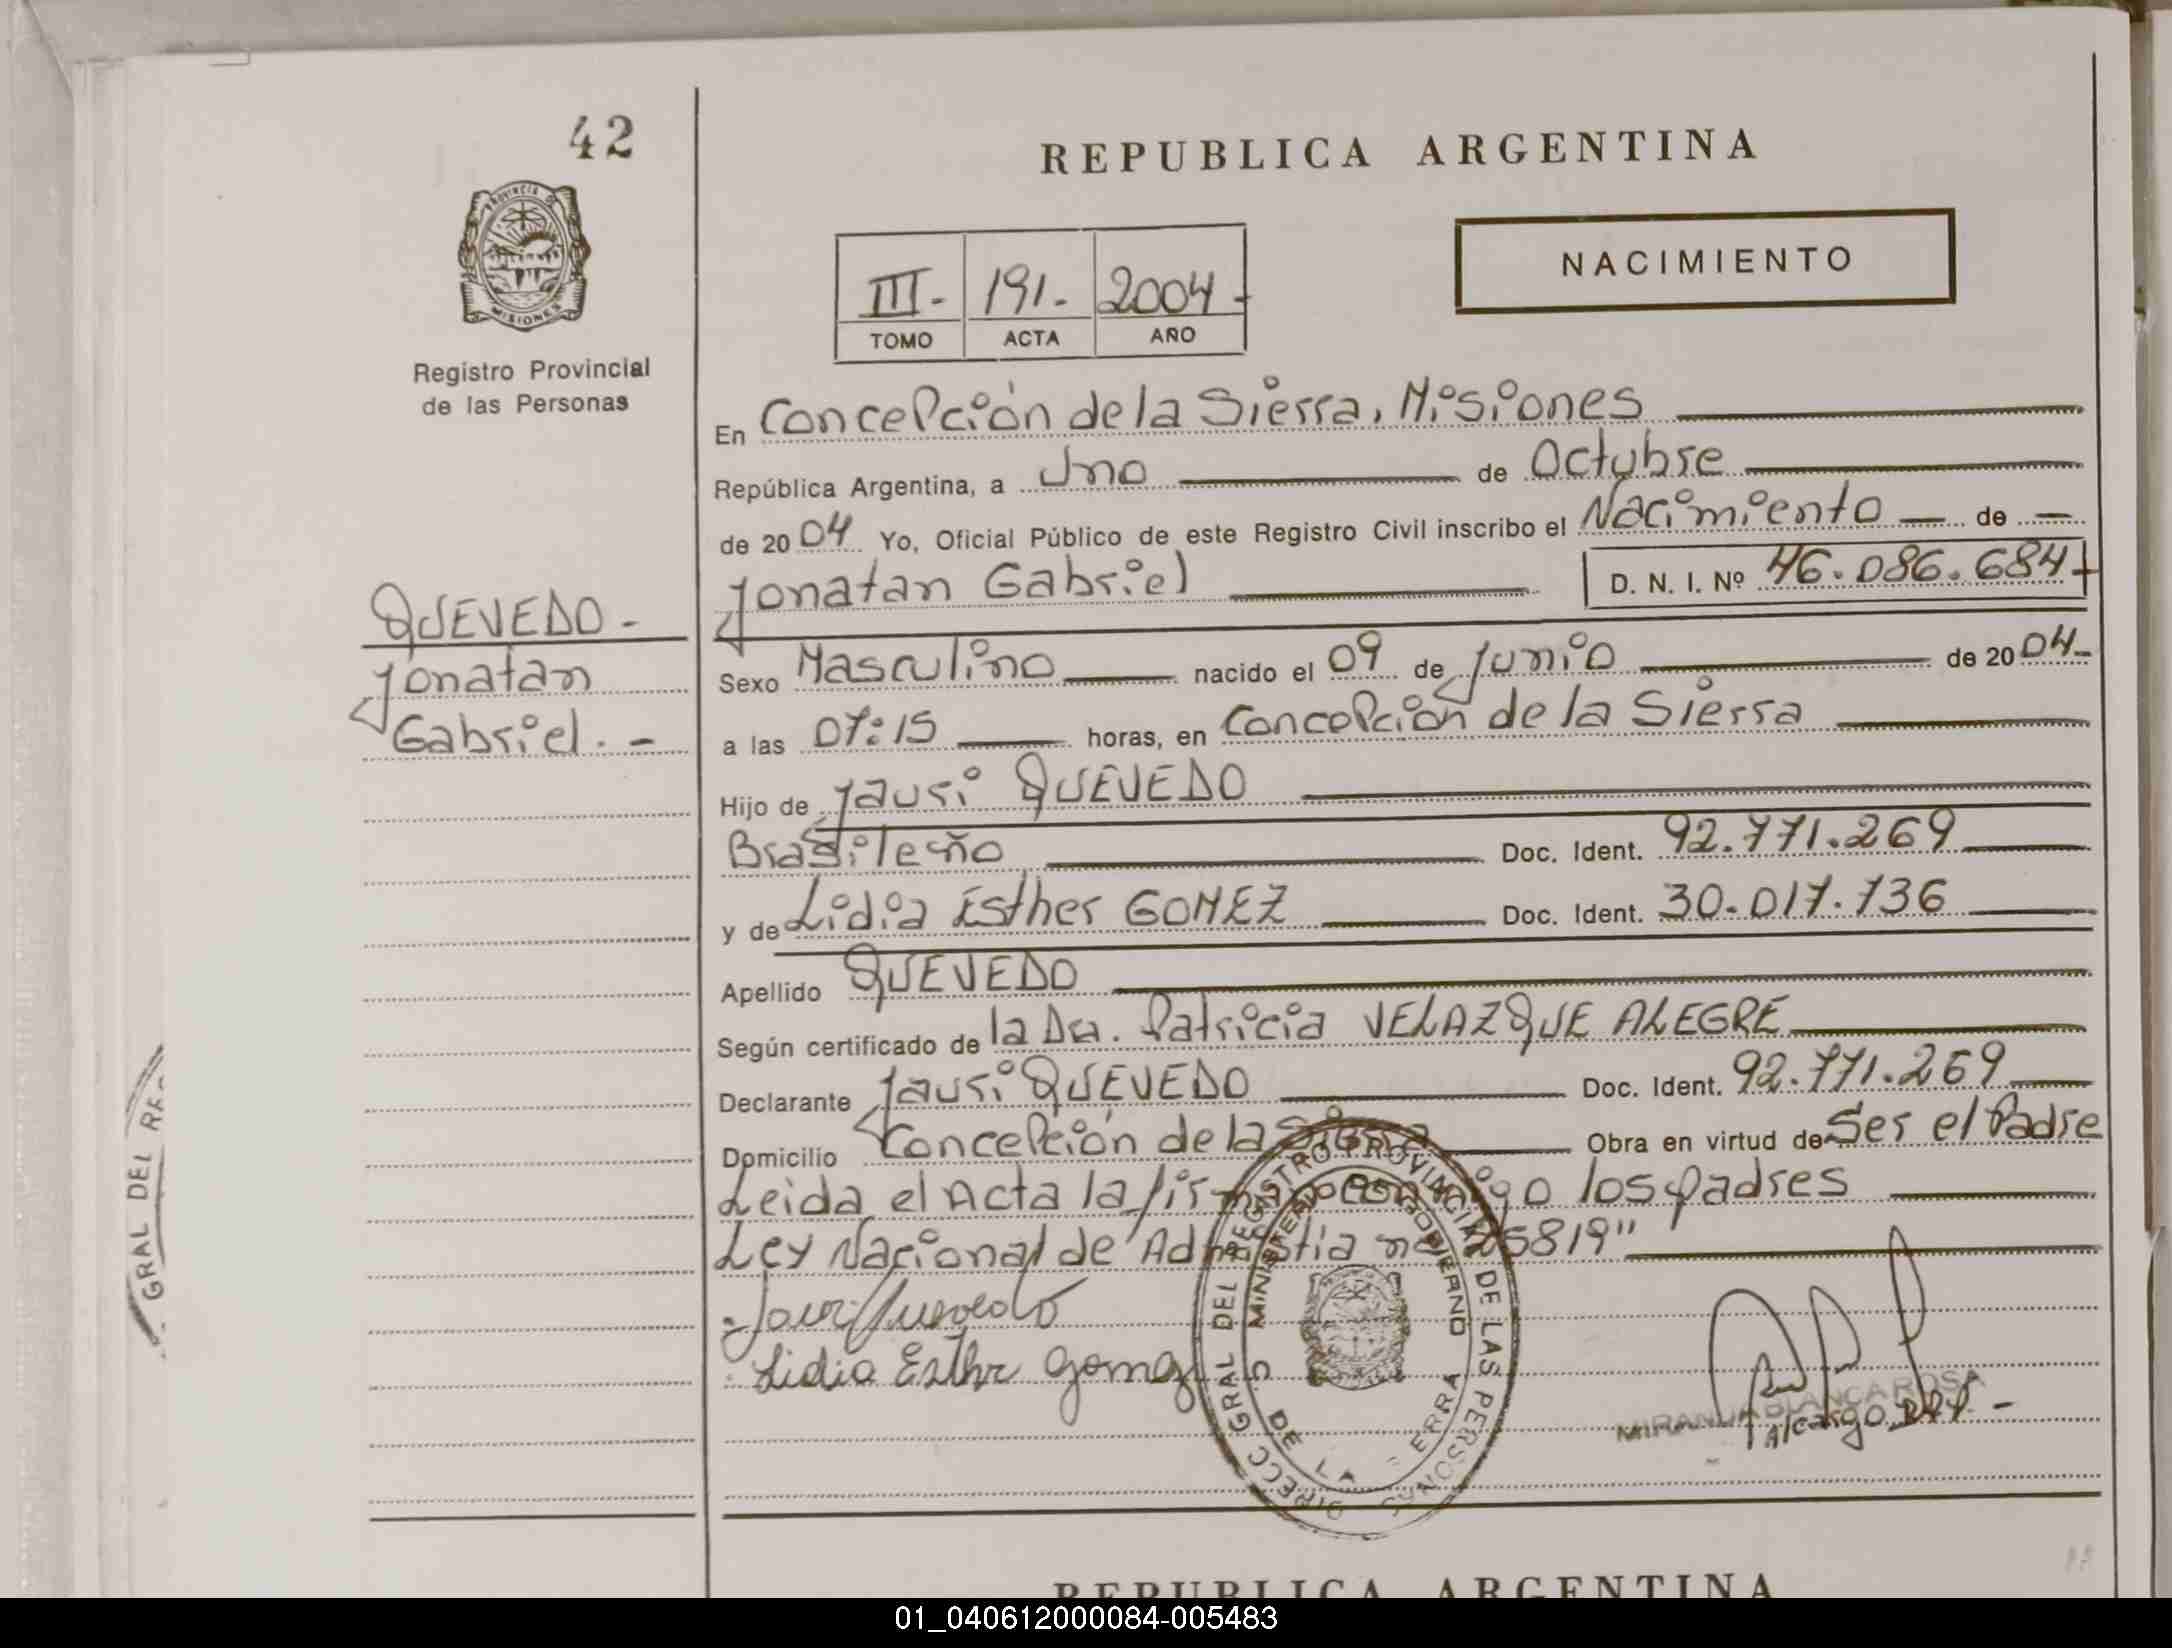 42
REPUBLICA ARGENTINA
PROVINCIA DE
MISIONES
Registro Provincial
de las Personas
III- 191.- 2004-
TOMO ACTA AÑO
NACIMIENTO
En Concepción de la Sierra, Misiones
República Argentina, a Uno de Octubre
de 2004 Yo, Oficial Público de este Registro Civil inscribo el Nacimiento — de —
Jonatan Gabriel D. N. I. Nº 46.086.684
QUEVEDO -
Jonatan
Gabriel. -
Sexo Masculino nacido el 09 de Junio de 2004-
a las 07:15 horas, en Concepción de la Sierra
Hijo de Jauri QUEVEDO
Brasileño Doc. Ident. 92.771.269
y de Lidia Esther GOMEZ Doc. Ident. 30.017.736
Apellido QUEVEDO
Según certificado de la Dra. Patricia VELAZQUE ALEGRE
Declarante Jauri QUEVEDO Doc. Ident. 92.771.269
Domicilio Concepción de la Sierra Obra en virtud de Ser el Padre
Leida el Acta la firman conmigo los padres
Ley Nacional de Admistia nº 25819"
Jauri Quevedo
Lidia Esther Gomez
DIRECC GRAL DEL REGISTRO PROVINCIAL DE LAS PERSONAS
MINISTERIO DE GOBIERNO
DE LA ERRA
MIRANDA BLANCA ROSA
A/cargo
GRAL DEL REG
REPUBLICA ARGENTINA
01_040612000084-005483